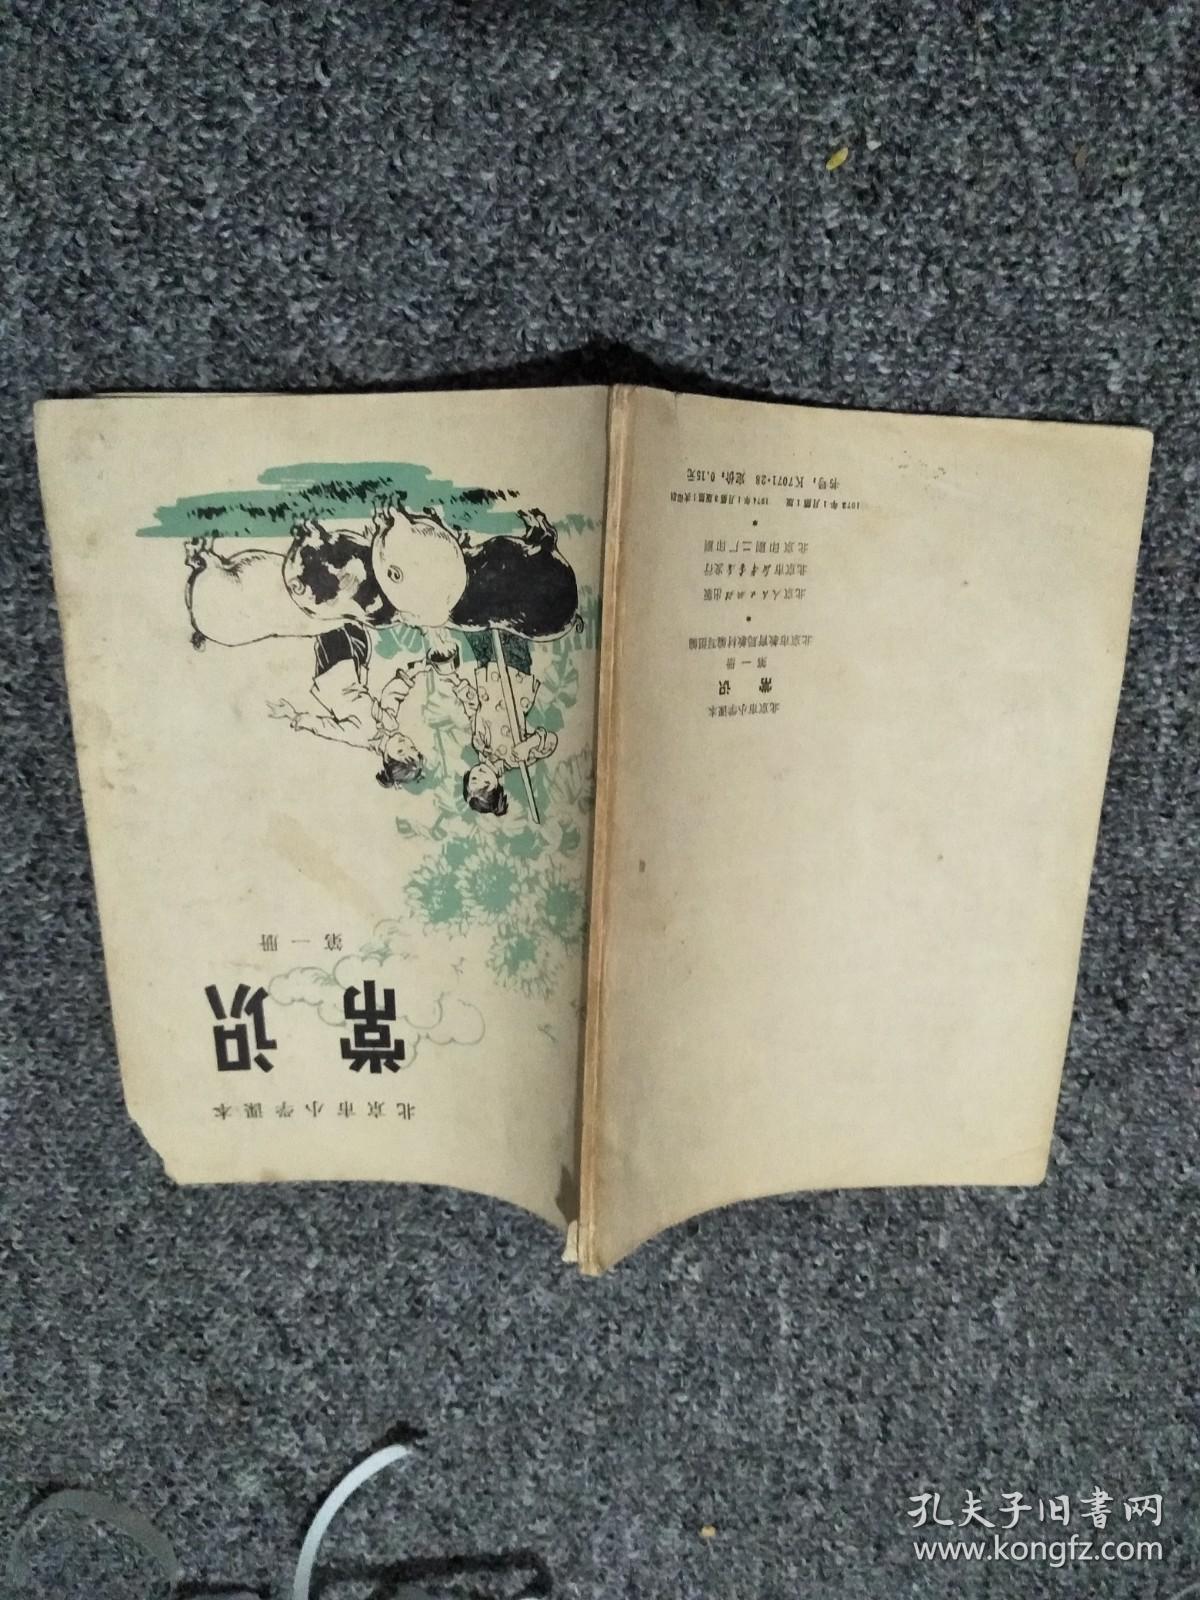 北京市小学课本
常识
第一册
北京市小学课本
常识
第一册
北京市教育局教材编写组编
北京人民出版社出版
北京市新华书店发行
北京印刷二厂印刷
1973年1月第1版 1974年1月第2版第1次印刷
书号：K7071·28 定价：0.15元
孔夫子旧書网
www.kongfz.com